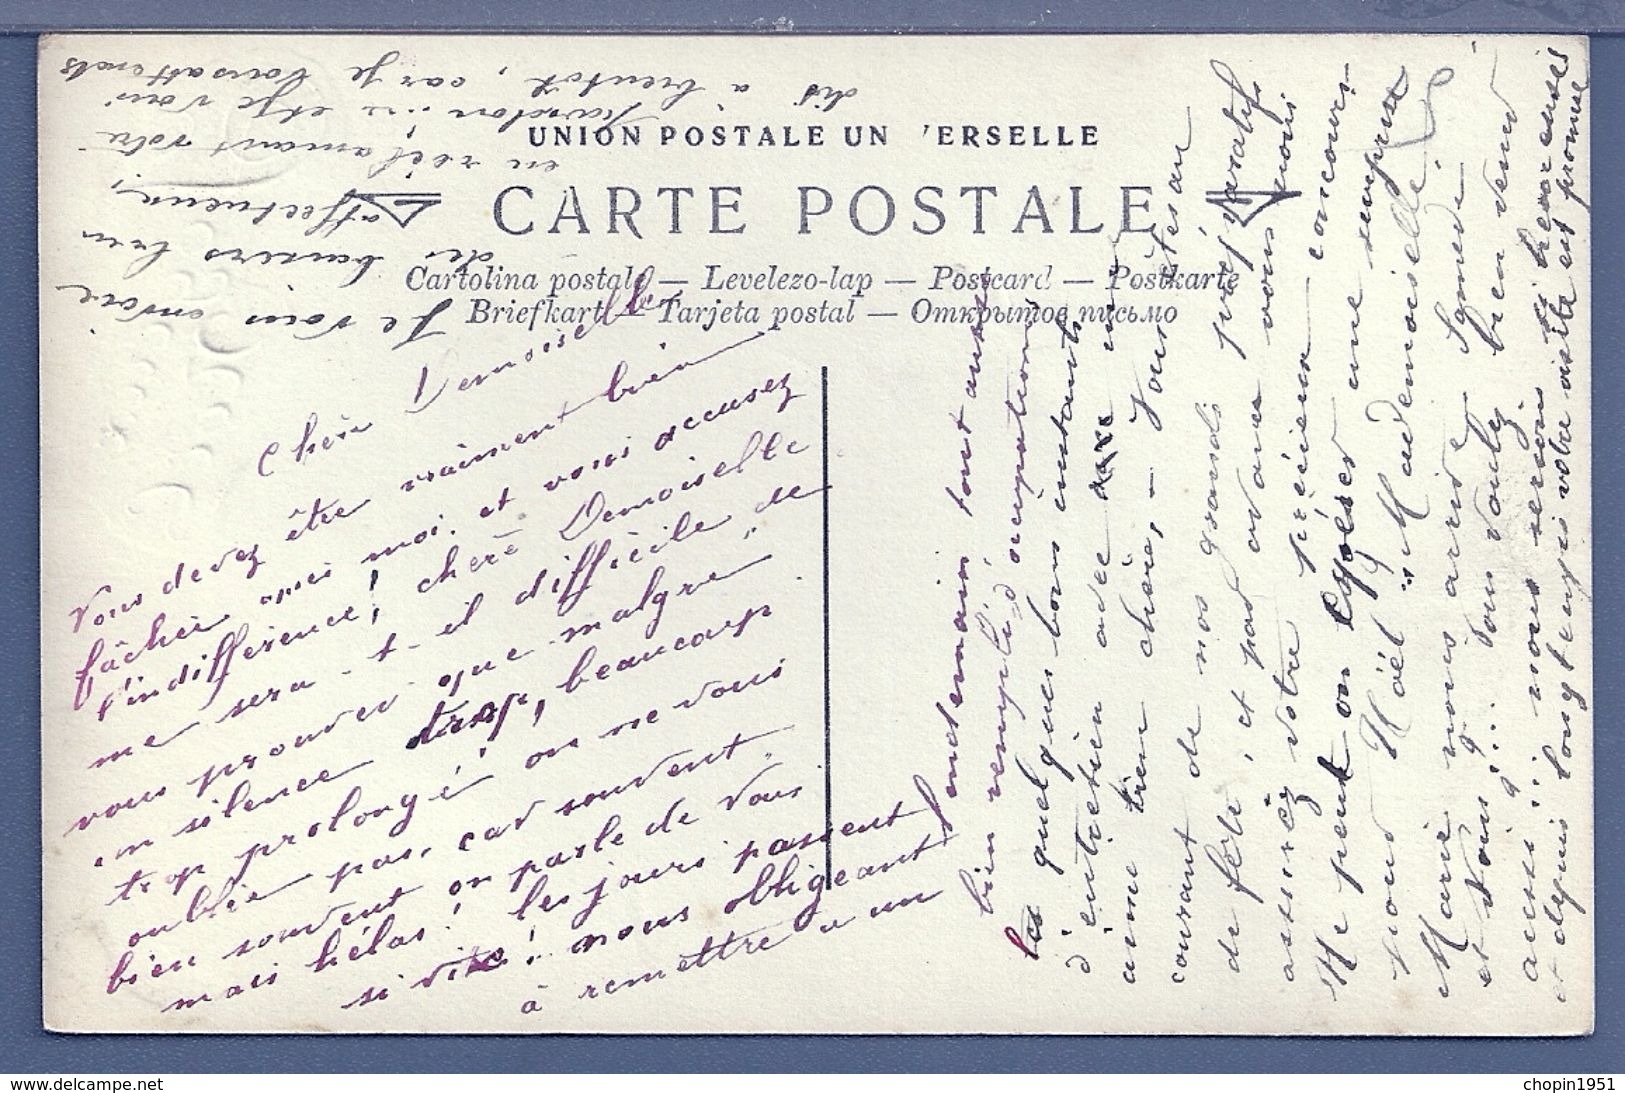 UNION POSTALE UN   'ERSELLE
CARTE POSTALE
Cartolina postale — Levelezo-lap — Postcard — Postkarte
Briefkart — Tarjeta postal — Открытое письмо
Chère Demoiselle
Vous devez être vraiment bien
fâchée après moi, et vous accusez
l'indifférence! chère Demoiselle
me sera-t-il difficile de
vous prouver que malgré
un silence trop, beaucoup
trop prolongé on ne vous
oublie pas, car souvent
bien souvent on parle de vous
mais hélas! les jours passent
si vite! nous obligeant
à remettre à un
lendemain tout aussi
bien rempli d'occupations
les quelques bons instants
d'entretien avec une
amie bien chère, — Vous êtes au
courant de nos grands préparatifs
de fête, et par avance vous nous
assurez votre précieux concours
Me peut on espérer une surprise
pour Noël "Mademoiselle"?
Marie nous arrive Samedi
et vous ?... Vous voulez bien venir
aussi ?... nous serions si heureuses
et depuis longtemps votre visite est promise
Je vous envoie
des baisers bien
affectueux,
en réclamant votre
pardon ... et je vous
dis à bientôt, car je vous attends
delcampe.net
chopin1951